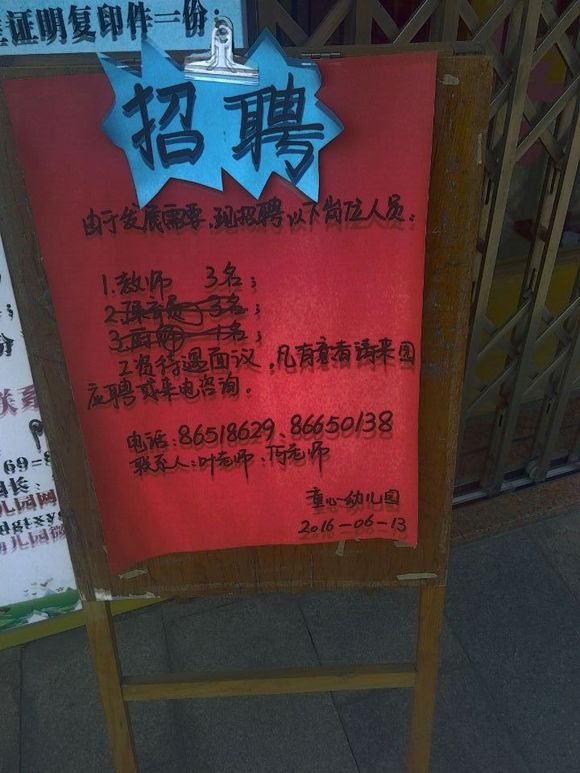 证明复印件一份：
招聘
由于发展需要，现招聘以下岗位人员：
1.教师 3名；
2.保育员 3名；
3.厨师 1名；
工资待遇面议，凡有意者请来园
应聘或来电咨询。
电话：86518629、86650138
联系人：叶老师、何老师
童心幼儿园
2016-06-13
份
联系
69=8
园长：
儿园网
dgtxy
幼儿园微